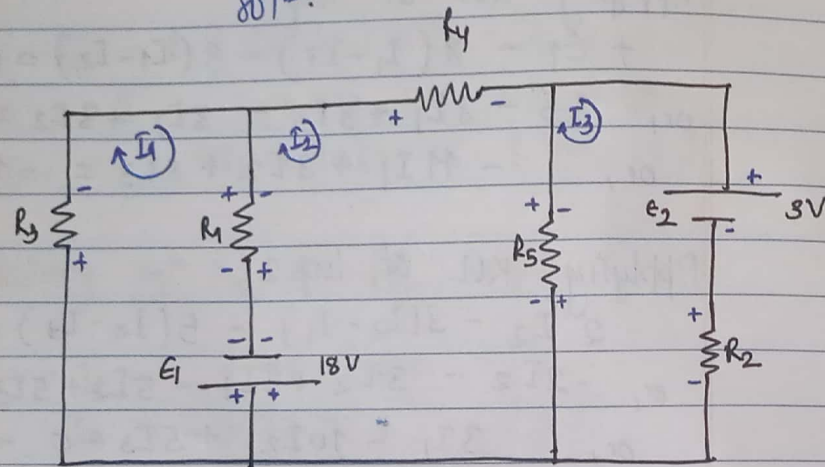 R4
I1 I2 I3
+ -
- + - + - +
R3 R1 R5 E2 3V
+ - + - + -
E1 - - 18V + R2
+ + -